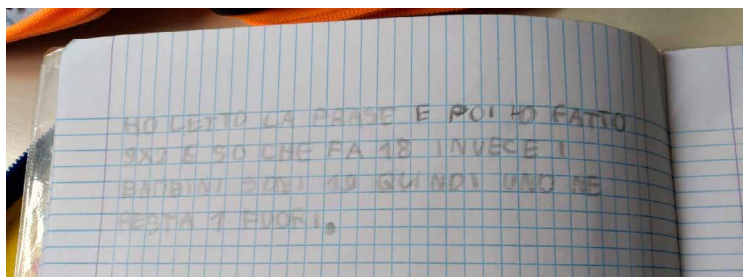 HO LETTO LA FRASE E POI HO FATTO
9X2 E SO CHE FA 18 INVECE I
BAMBINI SONO 19 QUINDI UNO NE
RESTA 1 FUORI.